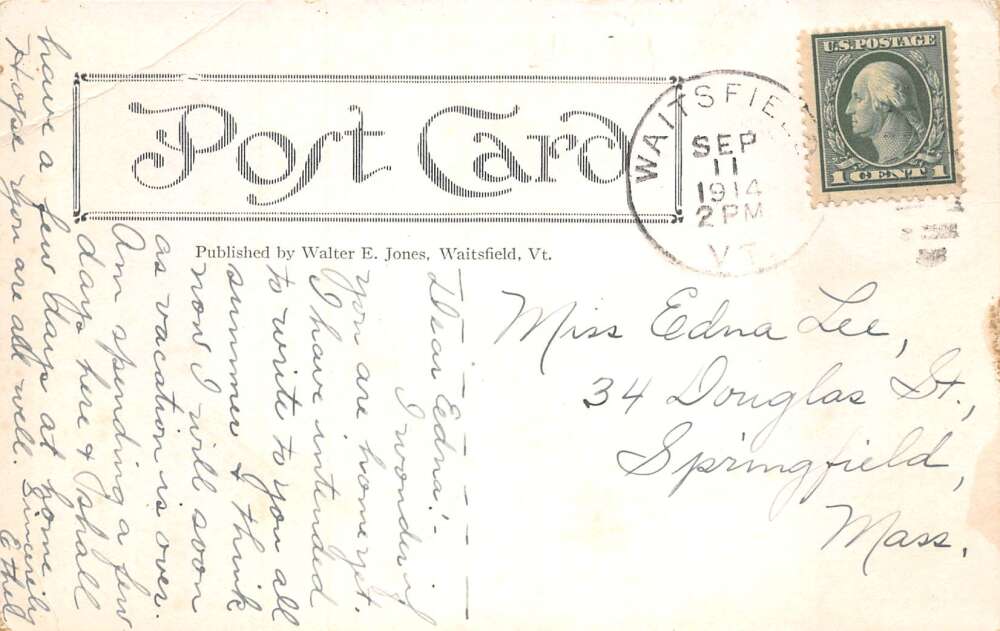 Post Card
Published by Walter E. Jones, Waitsfield, Vt.
WAITSFIELD
SEP
11
1914
2 PM
VT.
U.S. POSTAGE
1 CENT 1
Miss Edna Lee,
34 Douglas St.,
Springfield,
Mass.
Dear Edna:-
I wonder if
you are home yet.
I have intended
to write to you all
summer & think
now I will soon
as vacation is over.
Am spending a few
days here & shall
have a few days at home
Hope you are all well. Sincerely
Ethel